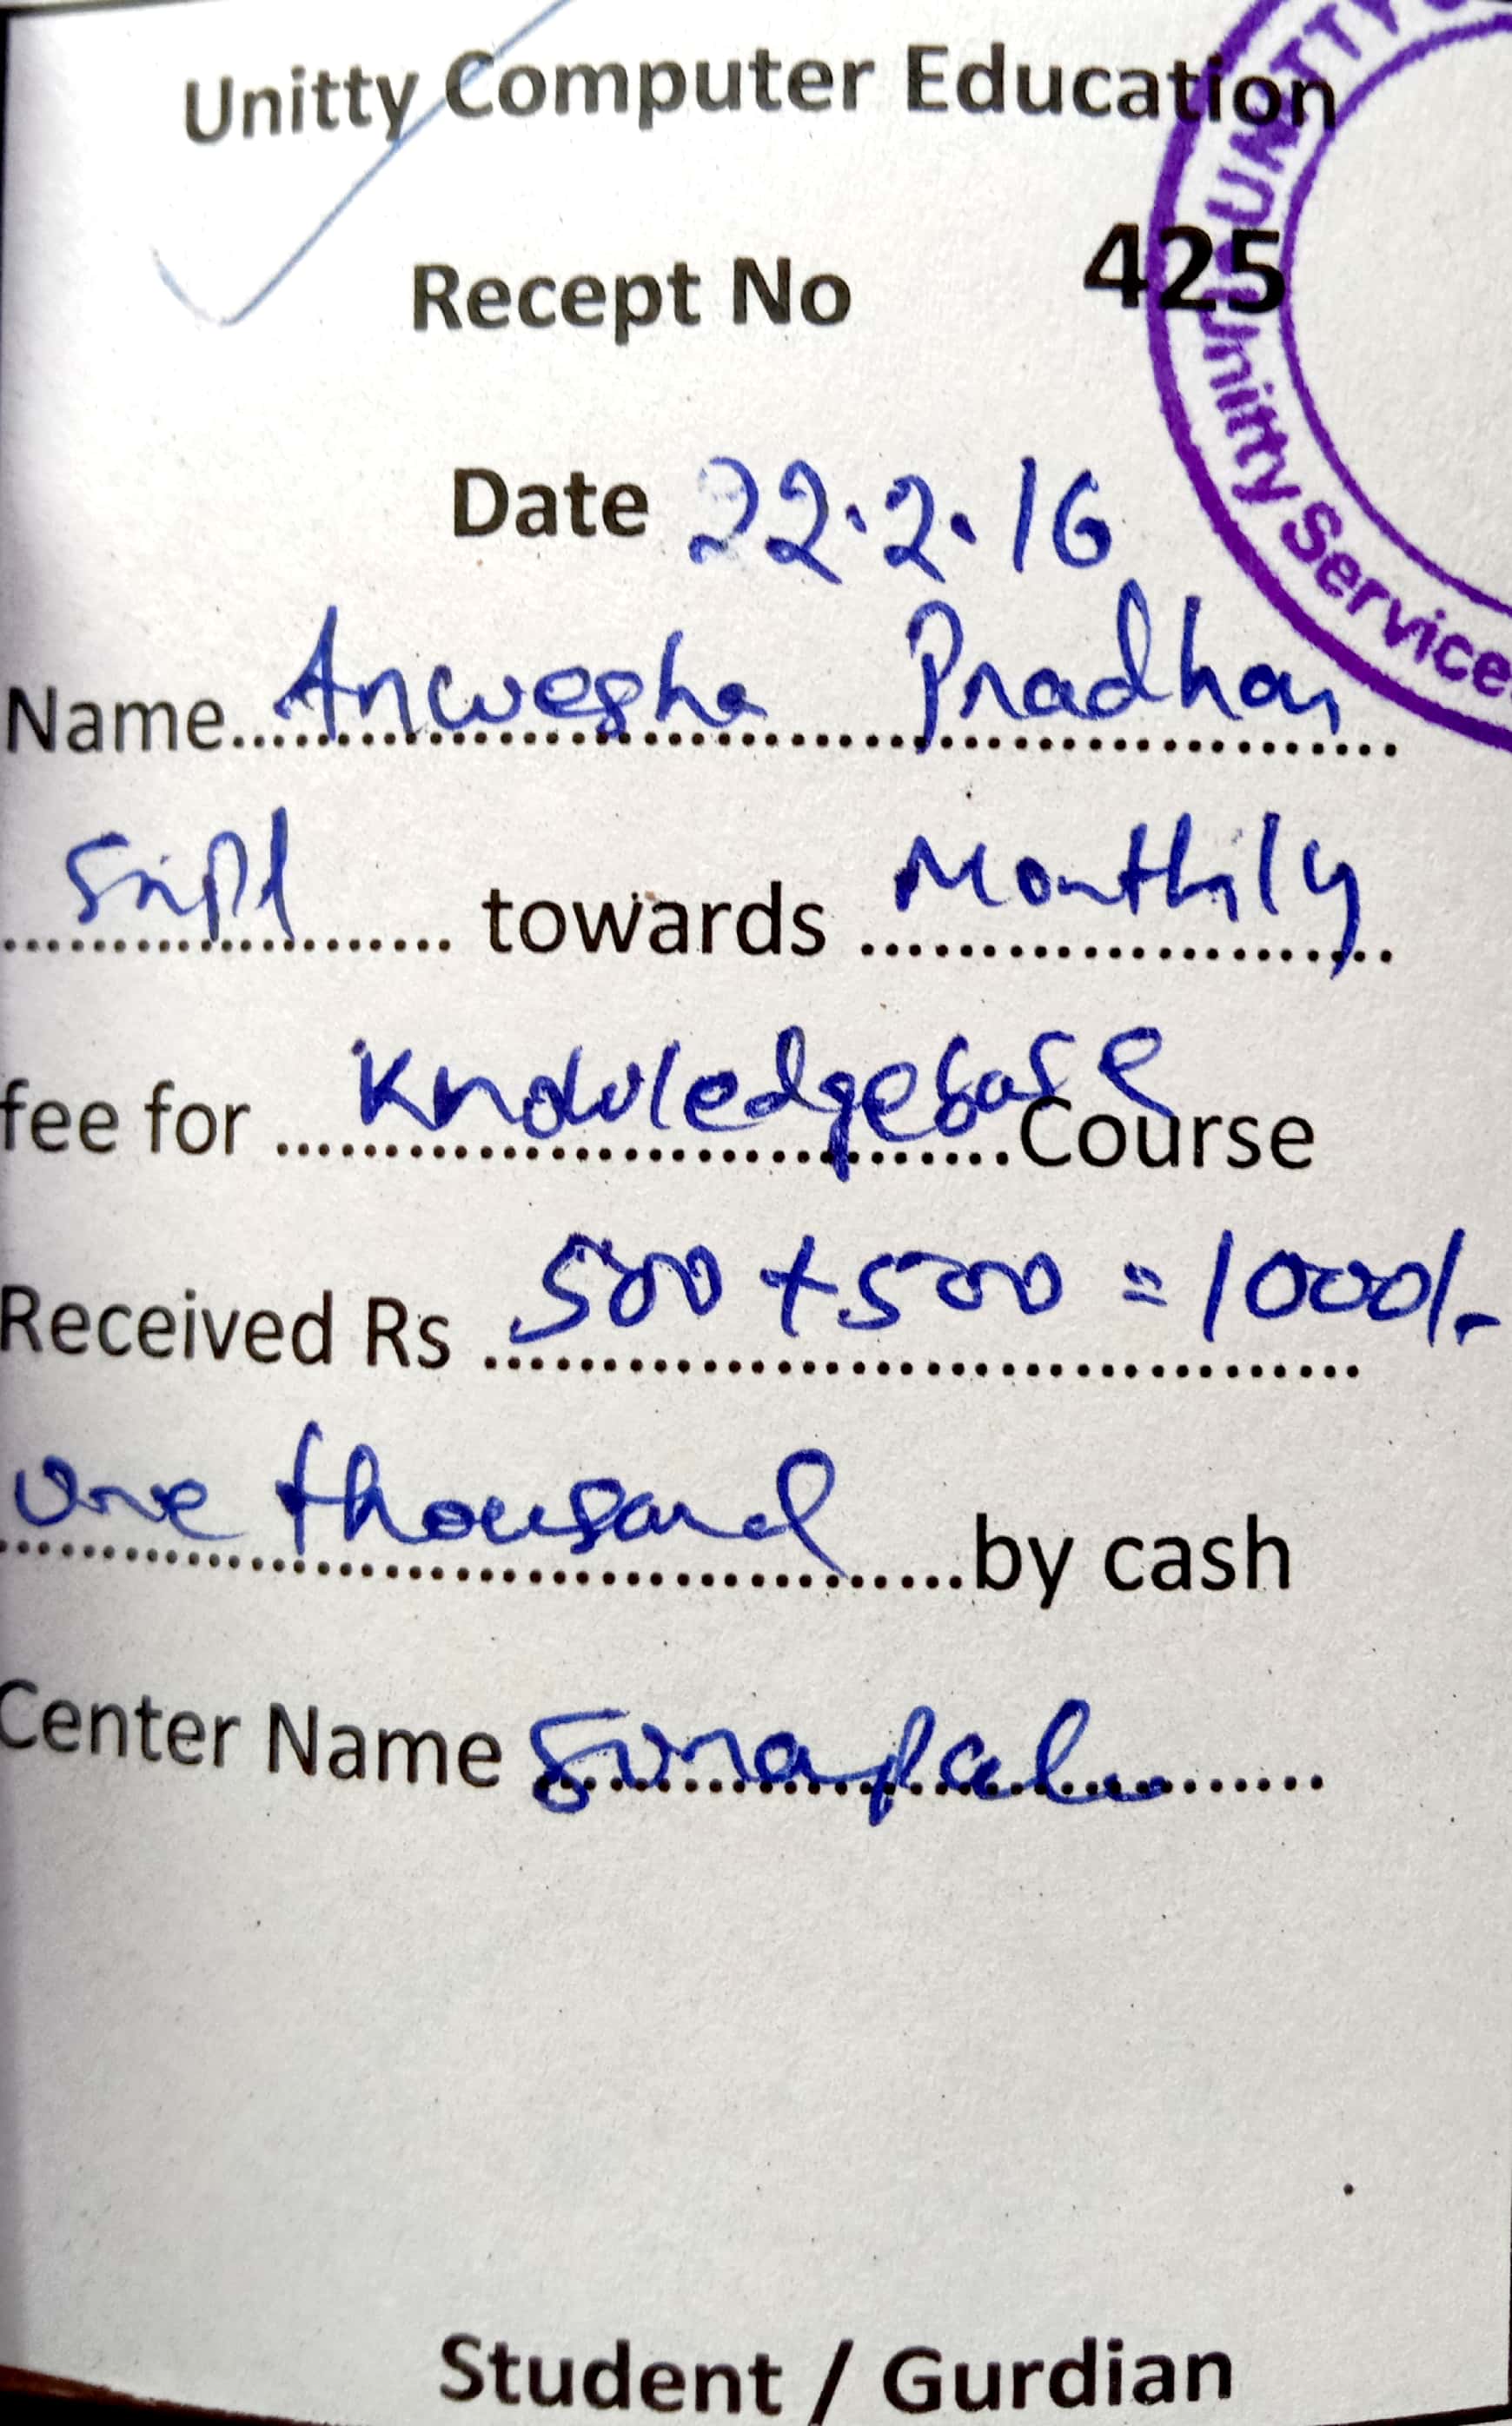 Unitty Computer Education
Recept No 425
Date 22.2.16
Name Anwesha Pradhan
towards Monthily
fee for Knowledgebase Course
Received Rs 500 + 500 = 1000/-
One thousand by cash
Center Name Sinapalu
Student / Gurdian
Unitty Service